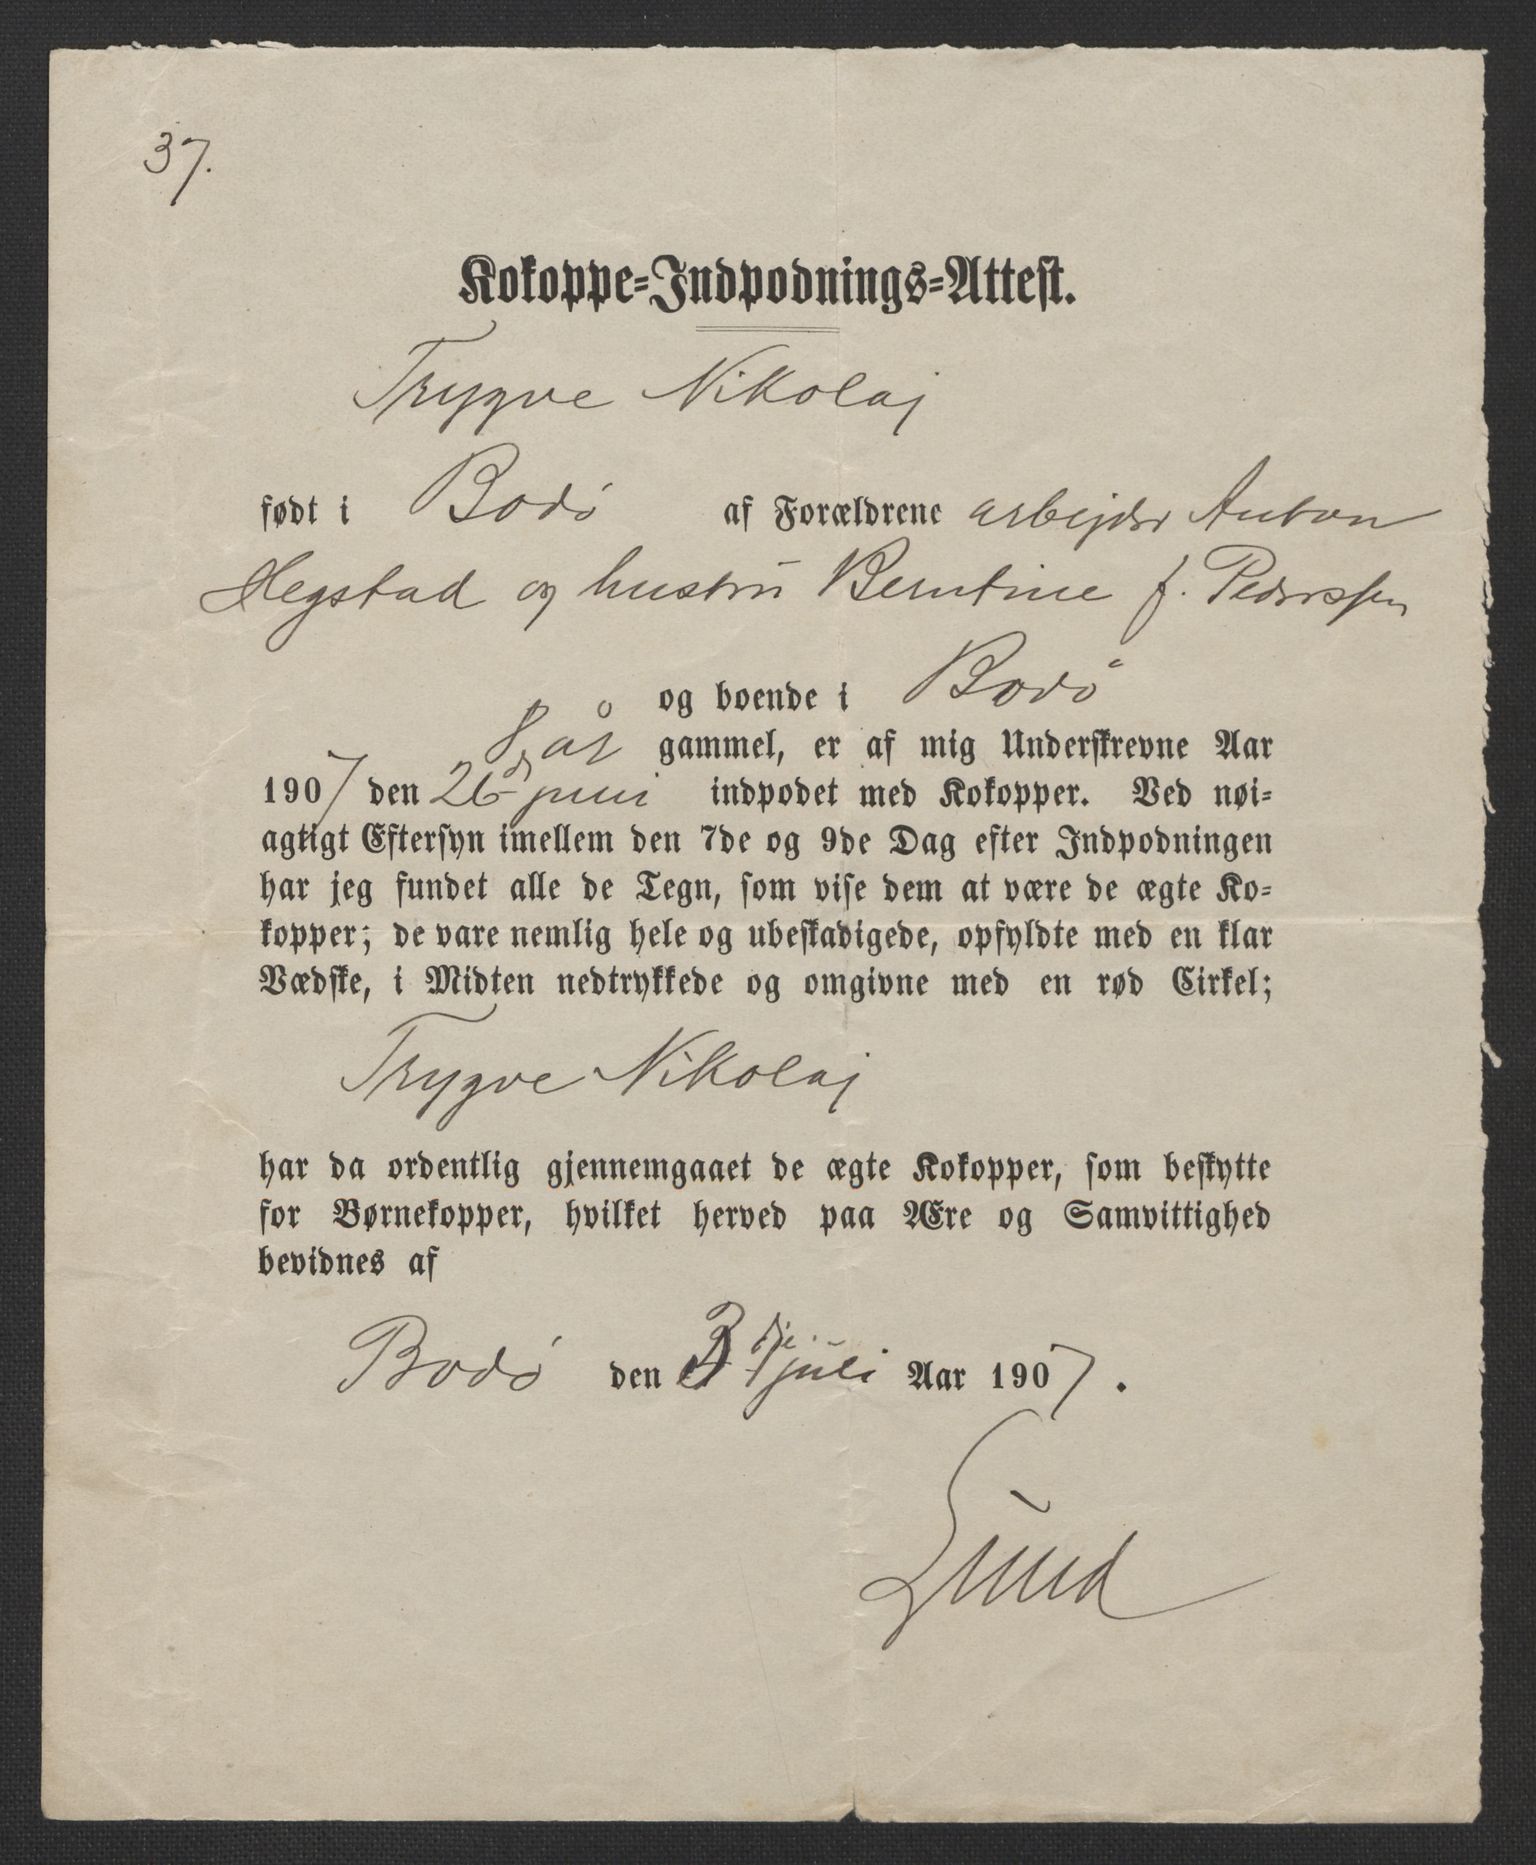 37.
Kokoppe-Indpodnings-Attest.
Trygve Nikolaj
født i Bodö af Forældrene arbejder Anton
Hegstad og hustru Berntine f. Pederssen
og boende i Bodö
8 år gammel, er af mig Underskrevne Aar
1907 den 26 juni indpodet med Kokopper. Ved nøi-
agtigt Eftersyn imellem den 7de og 9de Dag efter Indpodningen
har jeg fundet alle de Tegn, som vise dem at være de ægte Ko-
kopper; de vare nemlig hele og ubeskadigede, opfyldte med en klar
Vædske, i Midten nedtrykkede og omgivne med en rød Cirkel;
Trygve Nikolaj
har da ordentlig gjennemgaaet de ægte Kokopper, som beskytte
for Børnekopper, hvilket herved paa Ære og Samvittighed
bevidnes af
Bodö den 3dje juli Aar 1907.
Lund